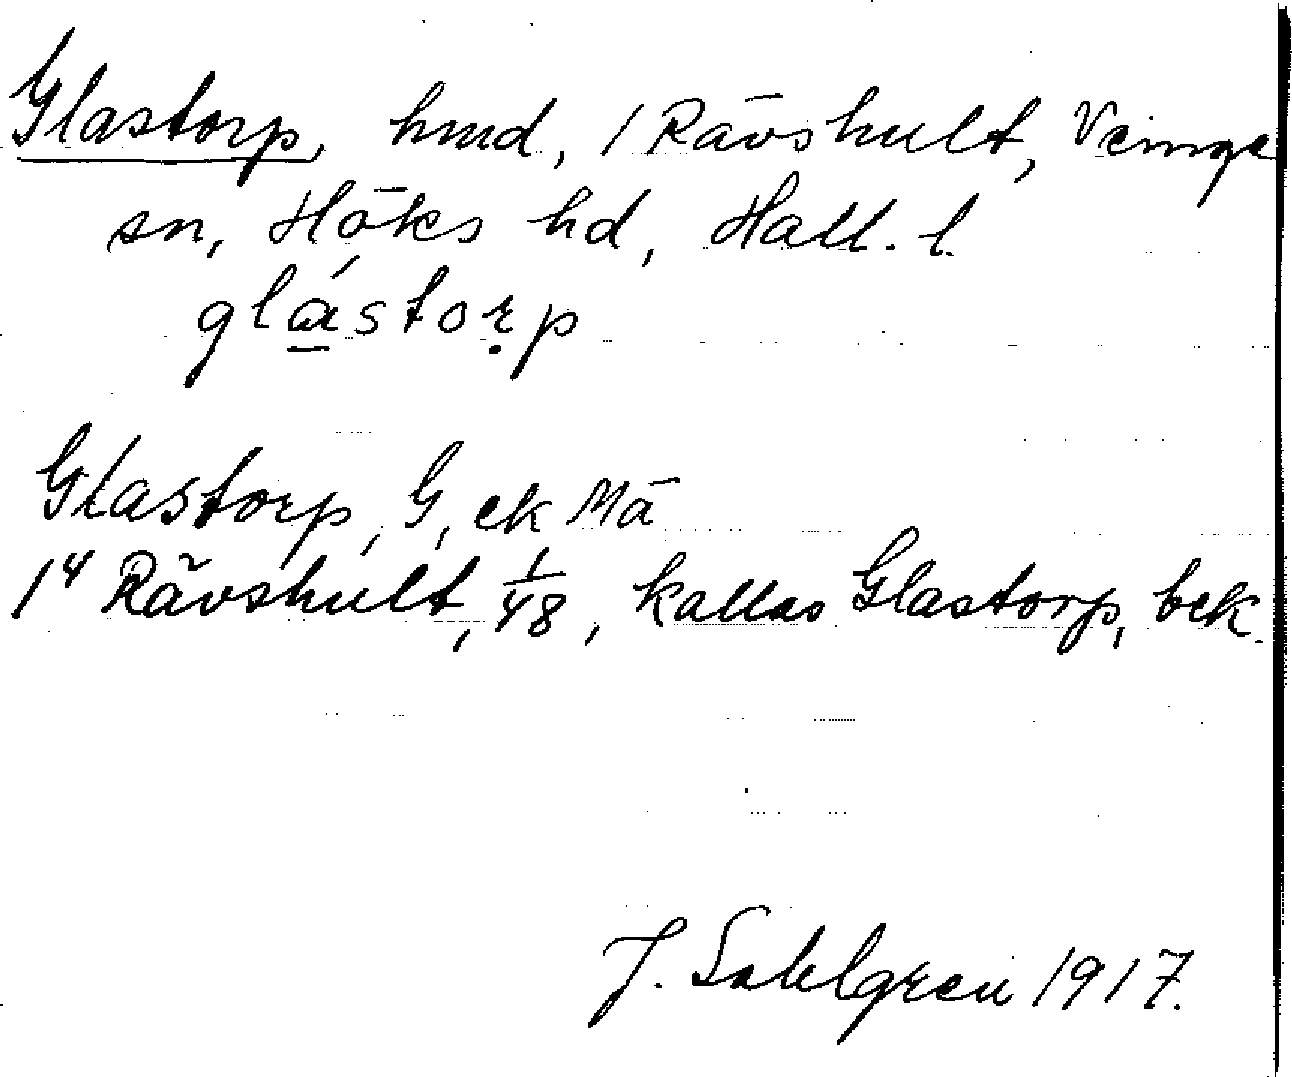 Glastorp, hmd, 1 Rävshult, Veinge
sn, Höks hd, Hall. l.
glástorp
Glastorp, G, ek Mä
1⁴ Rävshult, 1/48, kallas Glastorp, bek.
J. Sahlgren 1917.